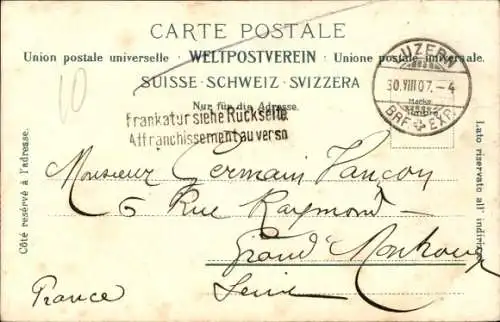 CARTE POSTALE
Union postale universelle · WELTPOSTVEREIN · Unione postale universale.
SUISSE·SCHWEIZ·SVIZZERA
Nur für die Adresse.
Frankatur siehe Rückseite
Affranchissement au verso
LUZERN
30.VIII 07. – 4
BRF. EXP.
Marke
10
Côté réservé à l'adresse.
Lato riservato all' indirizzo
Monsieur Germain
6 Rue Raymond
Grand Montrouge
Seine
France